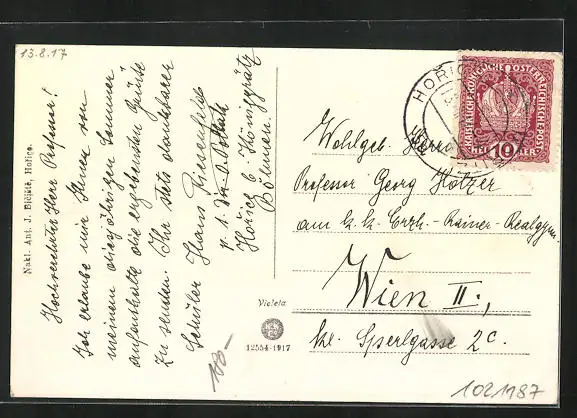 13.8.17
Hochverehrter Herr Professor!
Ich erlaube mir Ihnen von
meinem diesjährigen Sommer-
aufenthalte die ergebensten Grüsse
zu senden. Ihr stets dankbarer
Schüler Hans Riesenfeld
Hořice b. Königgrätz
Böhmen.
Nakl. Ant. J. Blejšek, Hořice.
Violeta
12554-1917
100-
HOŘICE
KAISERLICH KÖNIGLICHE ÖSTERREICHISCHE POST
HELLER 10 HALER
Wohlgeb. Herrn
Professor Georg Holzer
am k. k. Erzh.-Rainer-Realgym.
Wien II.,
kl. Sperlgasse 2c.
1021187